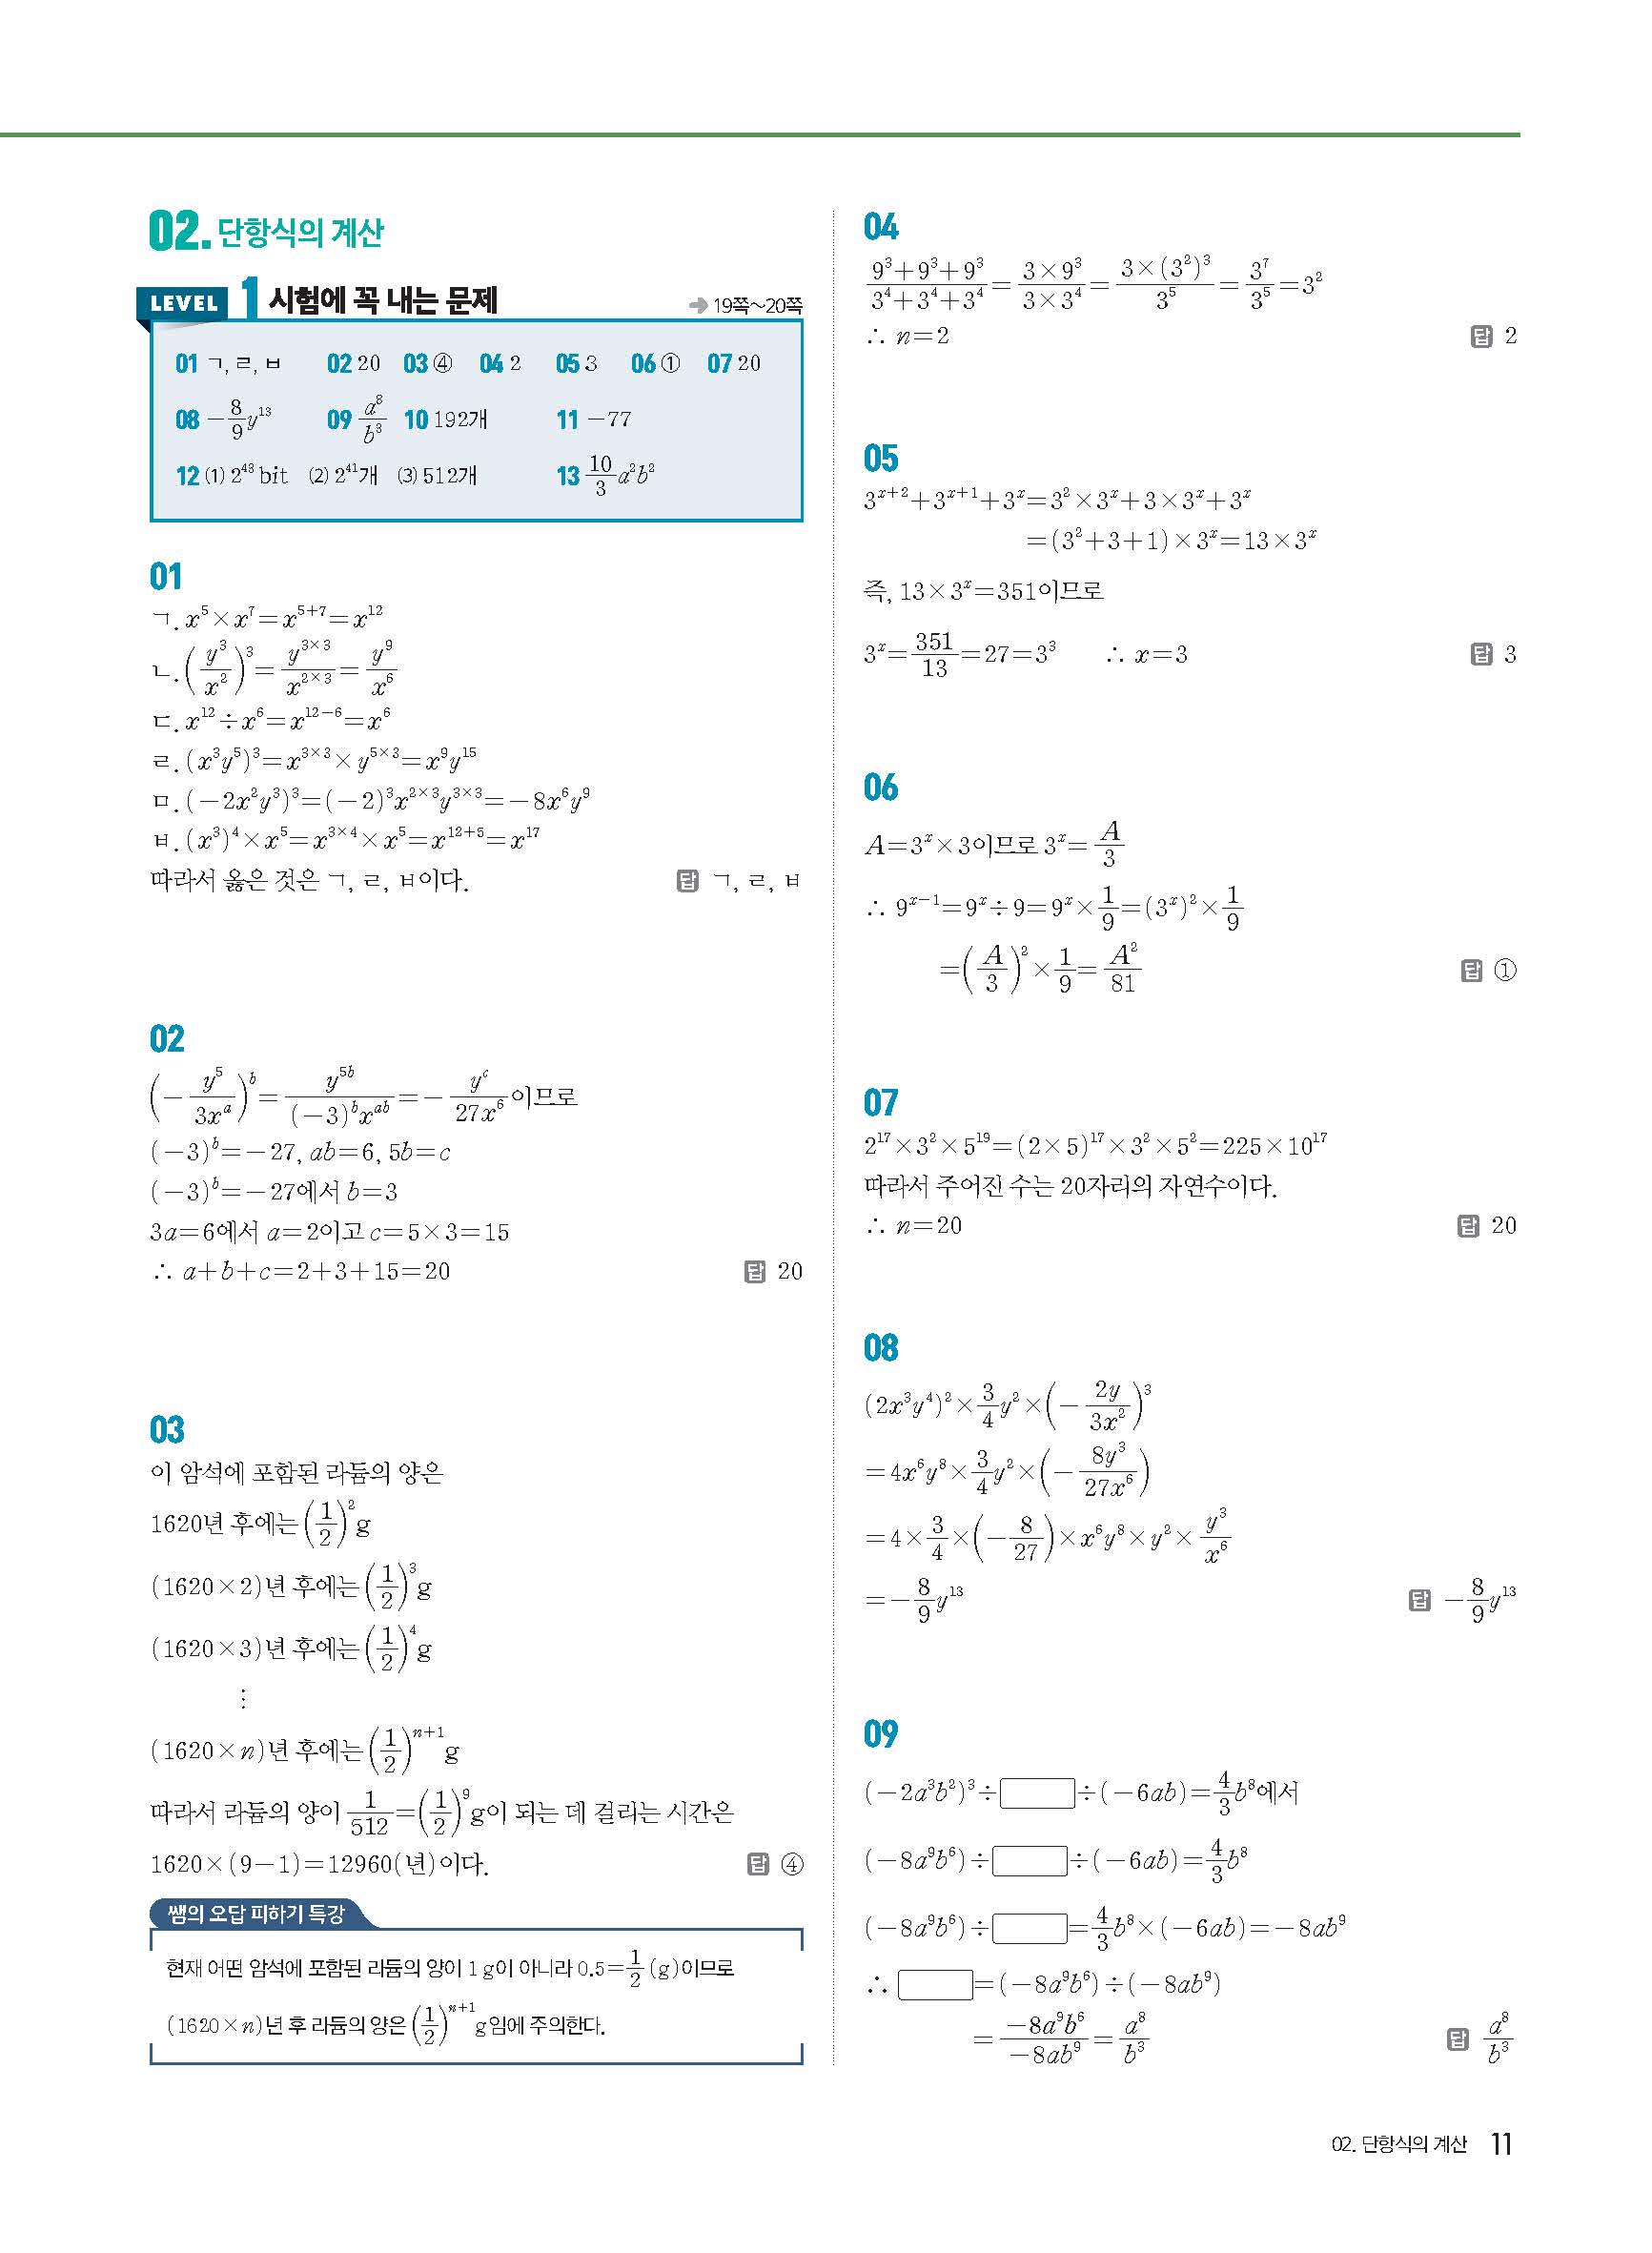 02. 단항식의 계산
LEVEL 1 시험에 꼭 내는 문제 → 19쪽~20쪽
01 ㄱ, ㄹ, ㅂ 02 20 03 ④ 04 2 05 3 06 ① 07 20
08 $-\frac{8}{9}y^{13}$ 09 $\frac{a^8}{b^3}$ 10 192개 11 −77
12 ⑴ $2^{43}$ bit ⑵ $2^{41}$개 ⑶ 512개 13 $\frac{10}{3}a^2b^2$
01
ㄱ. $x^5×x^7=x^{5+7}=x^{12}$
ㄴ. $\left(\frac{y^3}{x^2}\right)^3=\frac{y^{3×3}}{x^{2×3}}=\frac{y^9}{x^6}$
ㄷ. $x^{12}÷x^6=x^{12-6}=x^6$
ㄹ. $(x^3y^5)^3=x^{3×3}×y^{5×3}=x^9y^{15}$
ㅁ. $(-2x^2y^3)^3=(-2)^3x^{2×3}y^{3×3}=-8x^6y^9$
ㅂ. $(x^3)^4×x^5=x^{3×4}×x^5=x^{12+5}=x^{17}$
따라서 옳은 것은 ㄱ, ㄹ, ㅂ이다. 답 ㄱ, ㄹ, ㅂ
02
$\left(-\frac{y^5}{3x^a}\right)^b=\frac{y^{5b}}{(-3)^bx^{ab}}=-\frac{y^c}{27x^6}$이므로
$(-3)^b=-27$, $ab=6$, $5b=c$
$(-3)^b=-27$에서 $b=3$
$3a=6$에서 $a=2$이고 $c=5×3=15$
∴ $a+b+c=2+3+15=20$ 답 20
03
이 암석에 포함된 라듐의 양은
1620년 후에는 $\left(\frac{1}{2}\right)^2$g
(1620×2)년 후에는 $\left(\frac{1}{2}\right)^3$g
(1620×3)년 후에는 $\left(\frac{1}{2}\right)^4$g
⋮
(1620×n)년 후에는 $\left(\frac{1}{2}\right)^{n+1}$g
따라서 라듐의 양이 $\frac{1}{512}=\left(\frac{1}{2}\right)^9$g이 되는 데 걸리는 시간은
1620×(9−1)=12960(년)이다. 답 ④
쌤의 오답 피하기 특강
현재 어떤 암석에 포함된 라듐의 양이 1 g이 아니라 $0.5=\frac{1}{2}$ (g)이므로
(1620×n)년 후 라듐의 양은 $\left(\frac{1}{2}\right)^{n+1}$g임에 주의한다.
04
$\frac{9^3+9^3+9^3}{3^4+3^4+3^4}=\frac{3×9^3}{3×3^4}=\frac{3×(3^2)^3}{3^5}=\frac{3^7}{3^5}=3^2$
∴ $n=2$ 답 2
05
$3^{x+2}+3^{x+1}+3^x=3^2×3^x+3×3^x+3^x$
$=(3^2+3+1)×3^x=13×3^x$
즉, $13×3^x=351$이므로
$3^x=\frac{351}{13}=27=3^3$ ∴ $x=3$ 답 3
06
$A=3^x×3$이므로 $3^x=\frac{A}{3}$
∴ $9^{x-1}=9^x÷9=9^x×\frac{1}{9}=(3^x)^2×\frac{1}{9}$
$=\left(\frac{A}{3}\right)^2×\frac{1}{9}=\frac{A^2}{81}$ 답 ①
07
$2^{17}×3^2×5^{19}=(2×5)^{17}×3^2×5^2=225×10^{17}$
따라서 주어진 수는 20자리의 자연수이다.
∴ $n=20$ 답 20
08
$(2x^3y^4)^2×\frac{3}{4}y^2×\left(-\frac{2y}{3x^2}\right)^3$
$=4x^6y^8×\frac{3}{4}y^2×\left(-\frac{8y^3}{27x^6}\right)$
$=4×\frac{3}{4}×\left(-\frac{8}{27}\right)×x^6y^8×y^2×\frac{y^3}{x^6}$
$=-\frac{8}{9}y^{13}$ 답 $-\frac{8}{9}y^{13}$
09
$(-2a^3b^2)^3÷□÷(-6ab)=\frac{4}{3}b^8$에서
$(-8a^9b^6)÷□÷(-6ab)=\frac{4}{3}b^8$
$(-8a^9b^6)÷□=\frac{4}{3}b^8×(-6ab)=-8ab^9$
∴ $□=(-8a^9b^6)÷(-8ab^9)$
$=\frac{-8a^9b^6}{-8ab^9}=\frac{a^8}{b^3}$ 답 $\frac{a^8}{b^3}$
02. 단항식의 계산 11